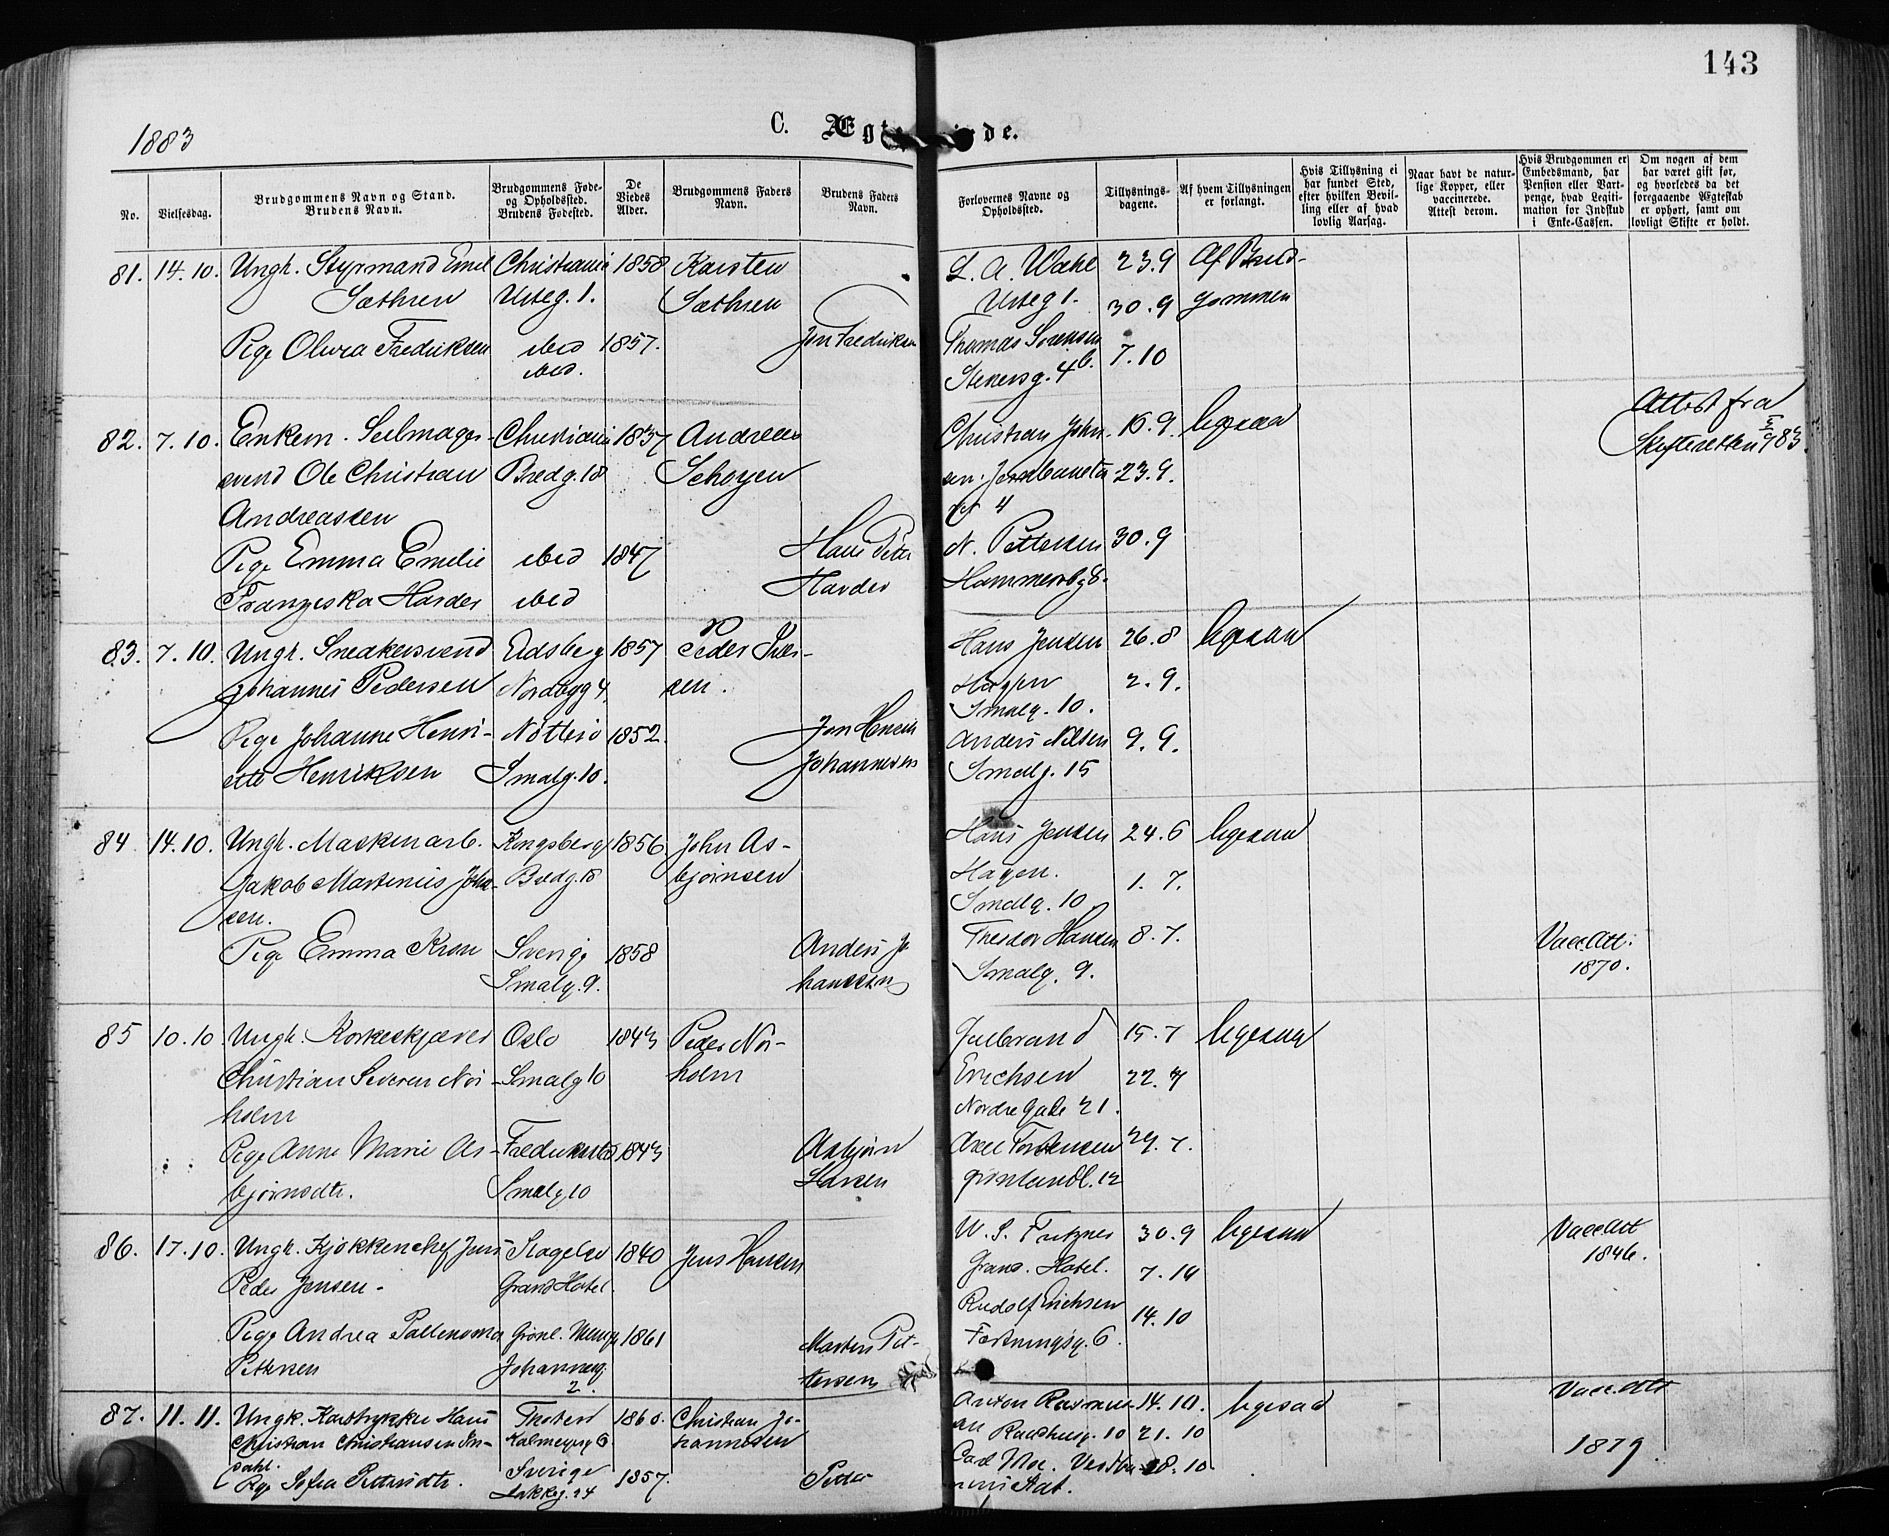 143
1883
C. Ægt
de.
No.
Vielsesdag.
Brudgommens Navn og Stand.
Brudens Navn.
Brudgommens Føde-
og Opholdssted.
Brudens Fødested.
De
Viedes
Alder.
Brudgommens Faders
Navn.
Brudens Faders
Navn.
Forlovernes Navne og
Opholdssted.
Tillysnings-
dagene.
Af hvem Tillysningen
er forlangt.
Hvis Tillysning ei
har fundet Sted,
efter hvilken Bevil-
ling eller af hvad
lovlig Aarsag.
Naar havt de natur-
lige Kopper, eller
vaccinerede.
Attest derom.
Hvis Brudgommen er
Embedsmand, har
Pension eller Vart-
penge, hvad Legiti-
mation for Indskud
i Enke-Cassen.
Om nogen af dem
har været gift før,
og hvorledes da det
foregaaende Ægteskab
er ophørt, samt om
lovligt Skifte er holdt.
81. 14.10. Ungk. Styrmand Emil Christiania 1858 Karsten L. A. Wahl 23.9 Af Brud-
Sæthren g. 1. Sæthren 1. 30.9 gommen
Pige Oliva Fredriksen ibid 1857. Jon Fredriksen Thomas Sørensen 7.10
ibid. g. 4b.
82. 7.10. Enkem. Seilmager- Christiania 1837 Andreas Christian John- 16.9. ligesaa Attest fra
svend Ole Christian Bredg. 18 Schøyen sen. 23.9. Skifteretten 83.
Andreassen 4
Pige Emma Emilie ibid 1847 Hans Peter N. Pettersen 30.9
Franziska Harder ibid Harder 8.
83. 7.10. Ungk. Snedkersvend Eidsberg 1857 Peder Hans Jensen 26.8 ligesaa
Johannes Pedersen Nordbyg 4. sen. Hagen 2.9.
Smalg. 10.
Pige Johanne Henri- Nøtterø 1852. Jon Anders Nilsen 9.9.
ette Henriksen Smalg. 10. Johannesen Smalg. 15
84 14.10. Ungk. Maskinarb. Kongsberg 1856 John As- Hans Jensen 24.6 ligesaa
Jakob Martinius John- Bredg. 18 bjørnsen Hagen. 1.7.
sen. Smalg. 10
Pige Emma Sverige 1858 Anders Jo Theodor Hansen 8.7. Vacc Att:
Smalg. 9. hanssen Smalg. 9. 1870.
85 10.10 Ungk. Korkeskjærer Oslo 1843 Peder Nør- Gulbrand 15.7 ligesaa
Christian Severin Nør- Smalg 10 holm Erichsen 22.7
holm Nordre Gade 21.
Pige Anne Marie As- Fredriksstad 1843 Asbjørn Axel Torstensen 29.7.
bjørnsdtr. Smalg 10 Larsen Grønlandl. 12
86. 17.10. Ungk. Kjøkkenchef Jens Slagelse 1840 Jens Hansen W. S. Fritzner 30.9 ligesaa Vacc Att
Peder Jensen Grand Hotel. Grand Hotel. 7.10 1846.
Pige Andrea Grønl. 1861 Morten Pet- Rudolf Erichsen 14.10
Pettersen Johannesg. tersen Fæstningsg. 6.
2.
87. 11.11. Ungk. Hans 1860. Christian Jo- Anton 14.10. ligesaa Vacc. Att
Christian Christiansen Calmeyersg 6 hannesen Raadhusg. 10 21.10 1879
dahl. Carl 28.10.
Pige Sofia Sverige 1857. Peder
Lakkeg. 24